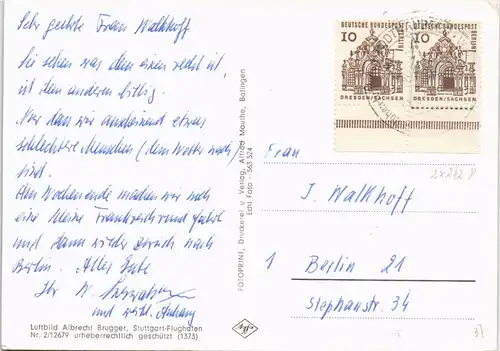 Sehr geehrte Frau Walkhoff
Sie sehen was dem einen recht ist,
ist dem anderen billig.
Nur dann wir anscheinend etwas
schlechtere Menschen (dem Wetter nach)
sind.
Am Wochenende machen wir noch
eine kleine Frankreichrundfahrt
und dann wieder zurück nach
Berlin. Alles Gute
Ihr W.
und weibl. Anhang
Luftbild Albrecht Brugger, Stuttgart-Flughafen
Nr. 2/12679 urheberrechtlich geschützt (1373)
FOTOPRINT, Druckerei u. Verlag, Alfred Marthe, Balingen
Echt Foto 363 524
DEUTSCHE BUNDESPOST
10
BERLIN
DRESDEN/SACHSEN
DEUTSCHE BUNDESPOST
10
BERLIN
DRESDEN/SACHSEN
2x242 P
Frau
I. Walkhoff
1 Berlin 21
Stephanstr. 34